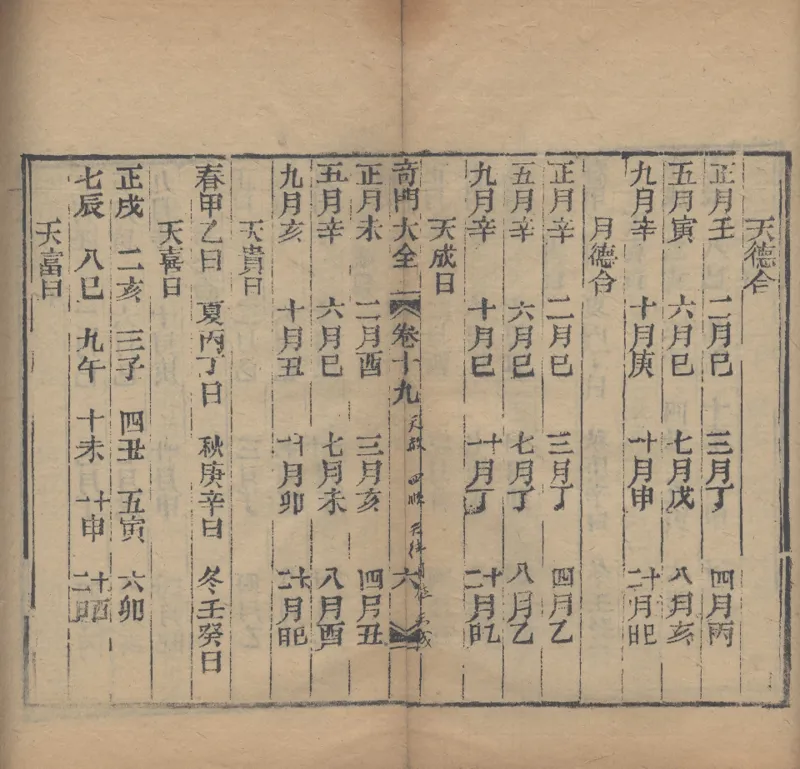 天德合
正月壬 二月巳 三月丁 四月丙
五月寅 六月巳 七月戊 八月亥
九月辛 十月庚 十一月申 十二月
月德合
正月辛 二月巳 三月丁 四月乙
五月辛 六月巳 七月丁 八月乙
九月辛 十月巳 十一月丁 十二月乙
天成日
奇門大全 卷十九 六
天赦 四順
正月未 二月酉 三月亥 四月丑
五月辛 六月巳 七月未 八月酉
九月亥 十月丑 十一月卯 十二月
天貴日
春甲乙日 夏丙丁日 秋庚辛日 冬壬癸日
天喜日
正戌 二亥 三子 四丑 五寅 六卯
七辰 八巳 九午 十未月 十一申 十二酉
天富日